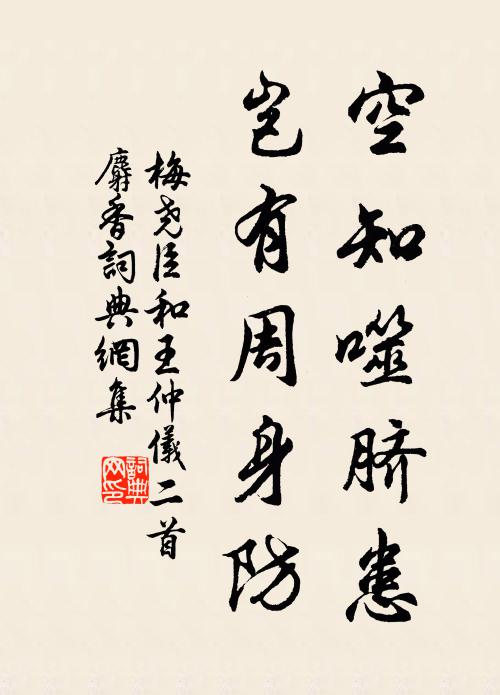 空知噬脐患
岂有周身防
梅尧臣和王仲儀二首
麝香詞典網集
詞典
网印